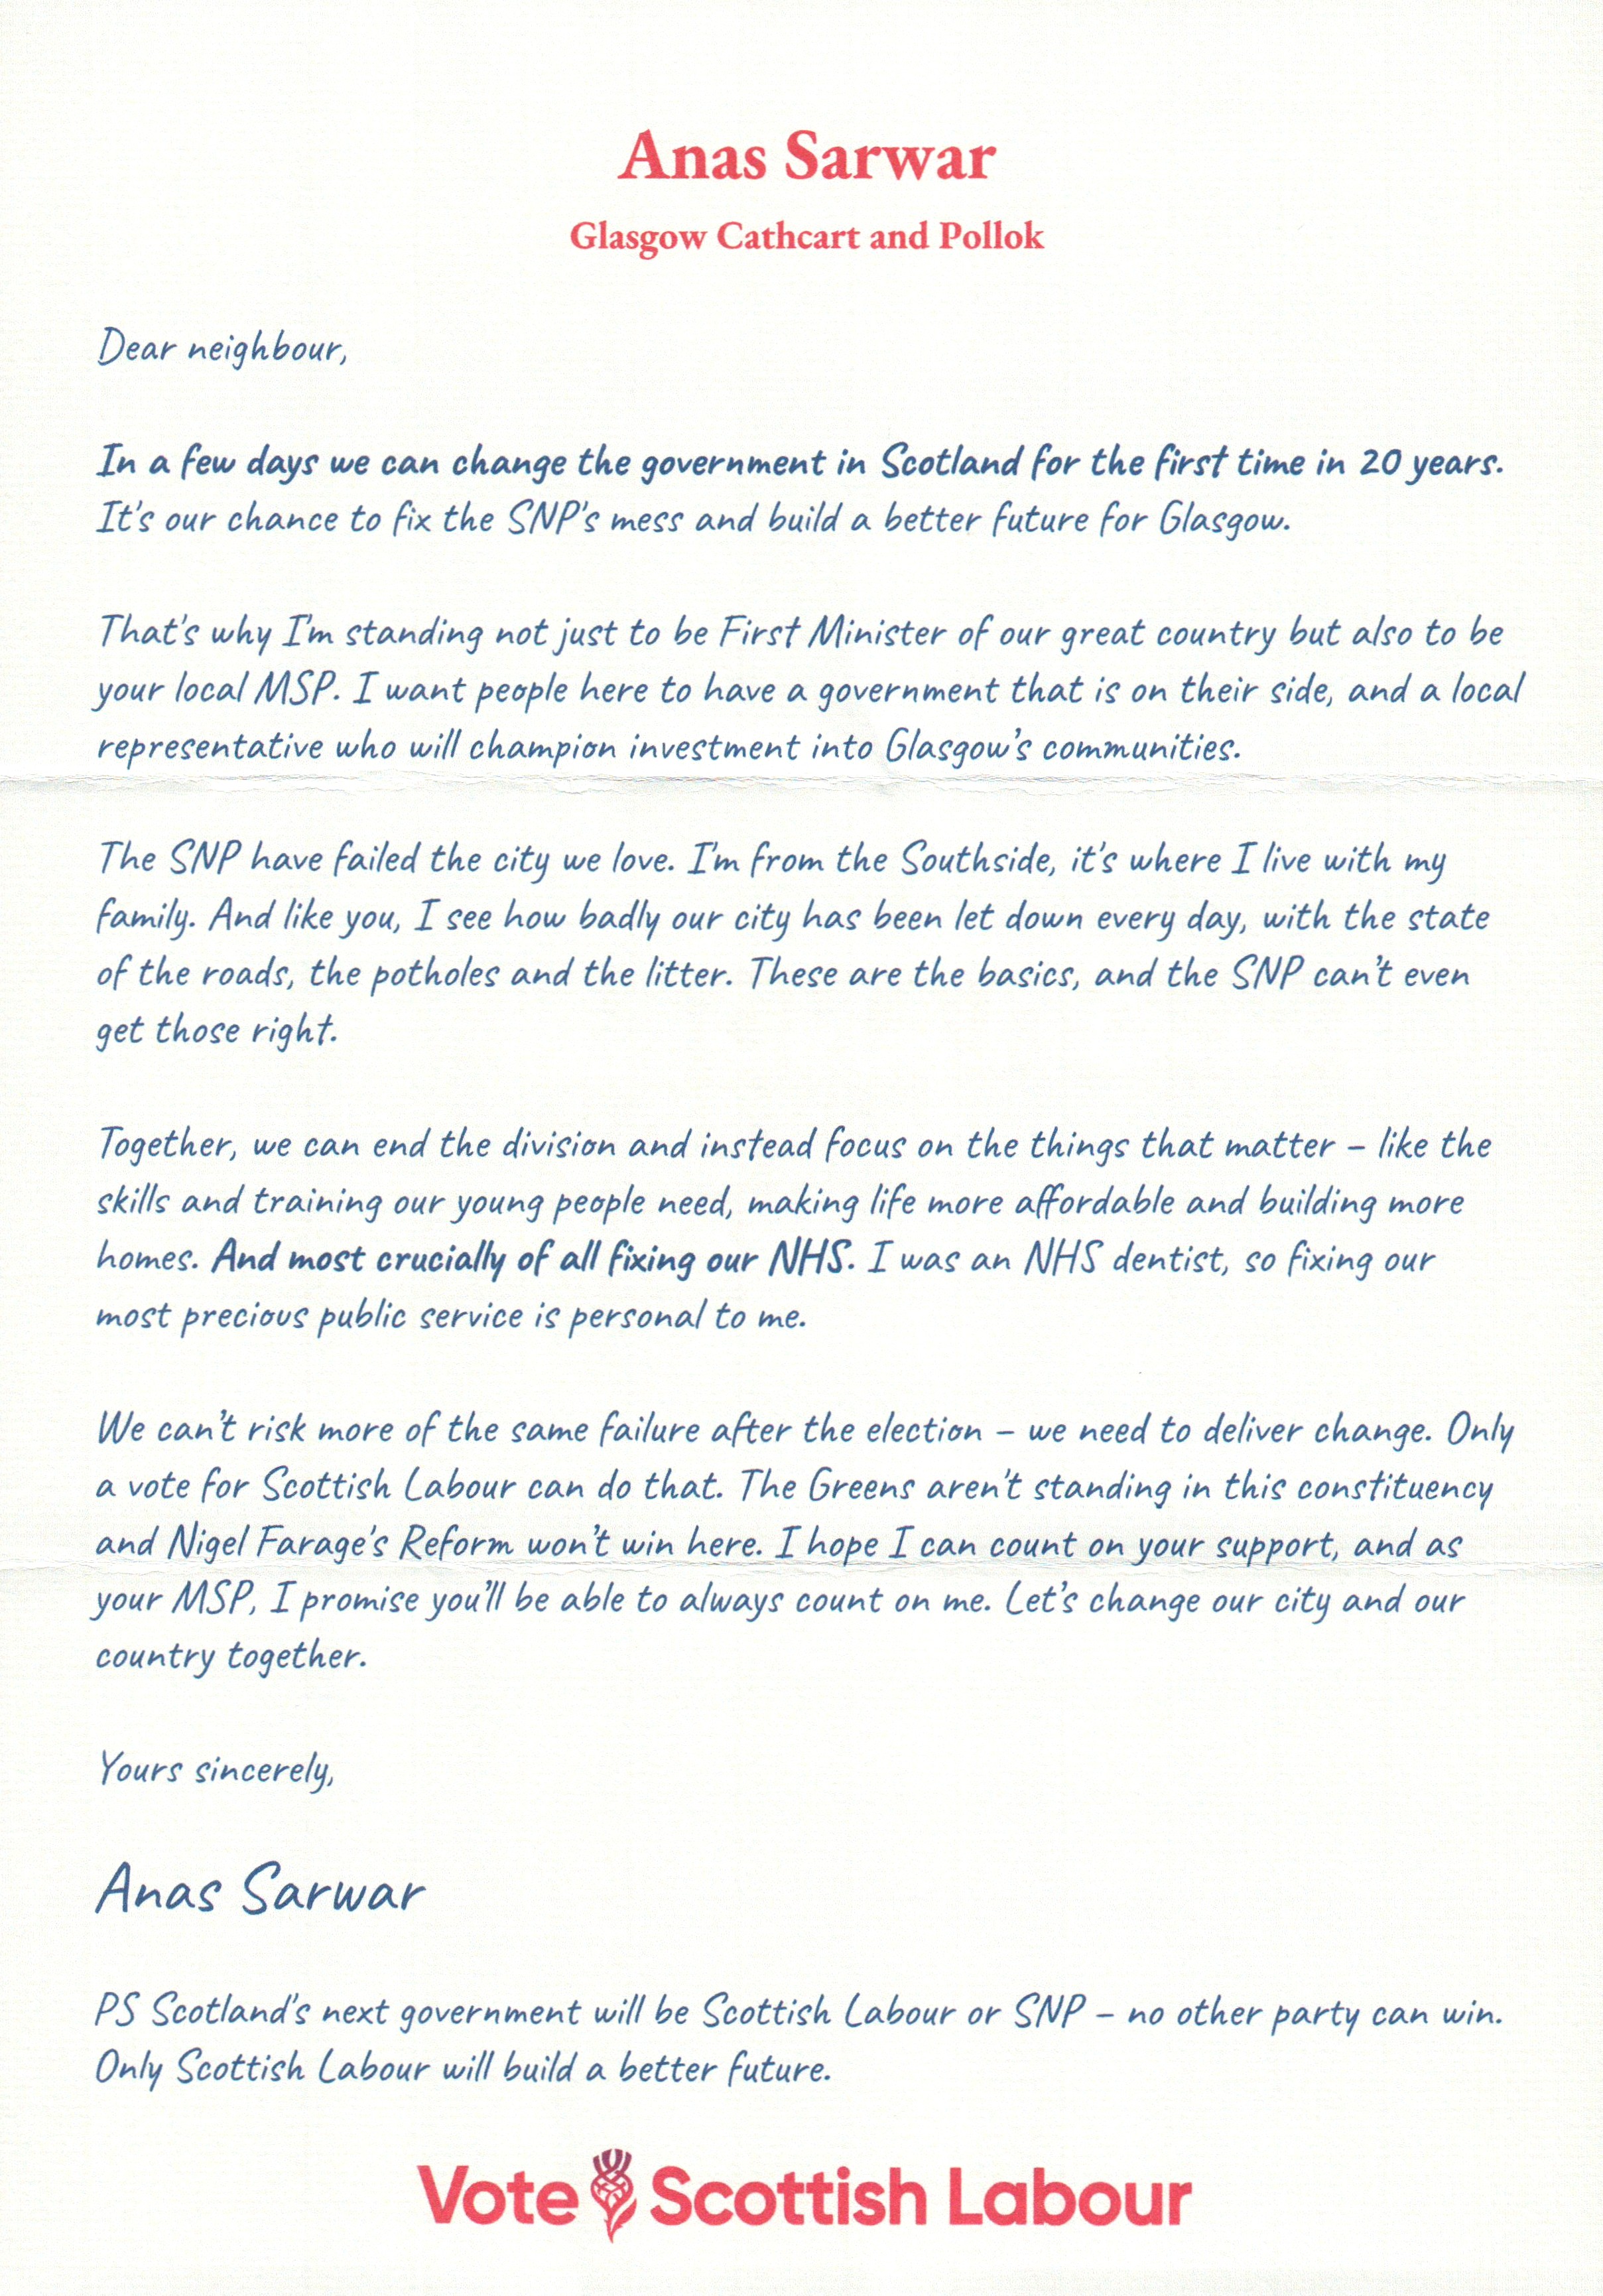 Anas Sarwar
Glasgow Cathcart and Pollok
Dear neighbour,
In a few days we can change the government in Scotland for the first time in 20 years.
It's our chance to fix the SNP's mess and build a better future for Glasgow.
That's why I'm standing not just to be First Minister of our great country but also to be
your local MSP. I want people here to have a government that is on their side, and a local
representative who will champion investment into Glasgow’s communities.
The SNP have failed the city we love. I'm from the Southside, it's where I live with my
family. And like you, I see how badly our city has been let down every day, with the state
of the roads, the potholes and the litter. These are the basics, and the SNP can’t even
get those right.
Together, we can end the division and instead focus on the things that matter – like the
skills and training our young people need, making life more affordable and building more
homes. And most crucially of all fixing our NHS. I was an NHS dentist, so fixing our
most precious public service is personal to me.
We can’t risk more of the same failure after the election – we need to deliver change. Only
a vote for Scottish Labour can do that. The Greens aren't standing in this constituency
and Nigel Farage's Reform won’t win here. I hope I can count on your support, and as
your MSP, I promise you’ll be able to always count on me. Let’s change our city and our
country together.
Yours sincerely,
Anas Sarwar
PS Scotland's next government will be Scottish Labour or SNP – no other party can win.
Only Scottish Labour will build a better future.
Vote Scottish Labour